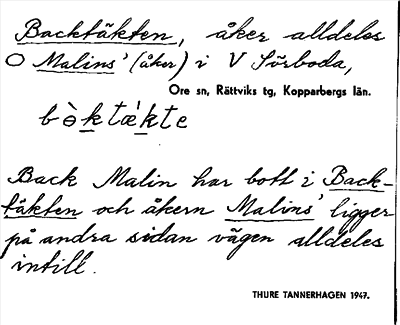 Backtäkten, åker alldeles
O Malins' (åker) i V Sörboda,
Ore sn, Rättviks tg, Kopparbergs län.
bə̀ktæ̀kte
Back Malin har bott i Back-
täkten och åkern Malins' ligger
på andra sidan vägen alldeles
intill.
THURE TANNERHAGEN 1947.